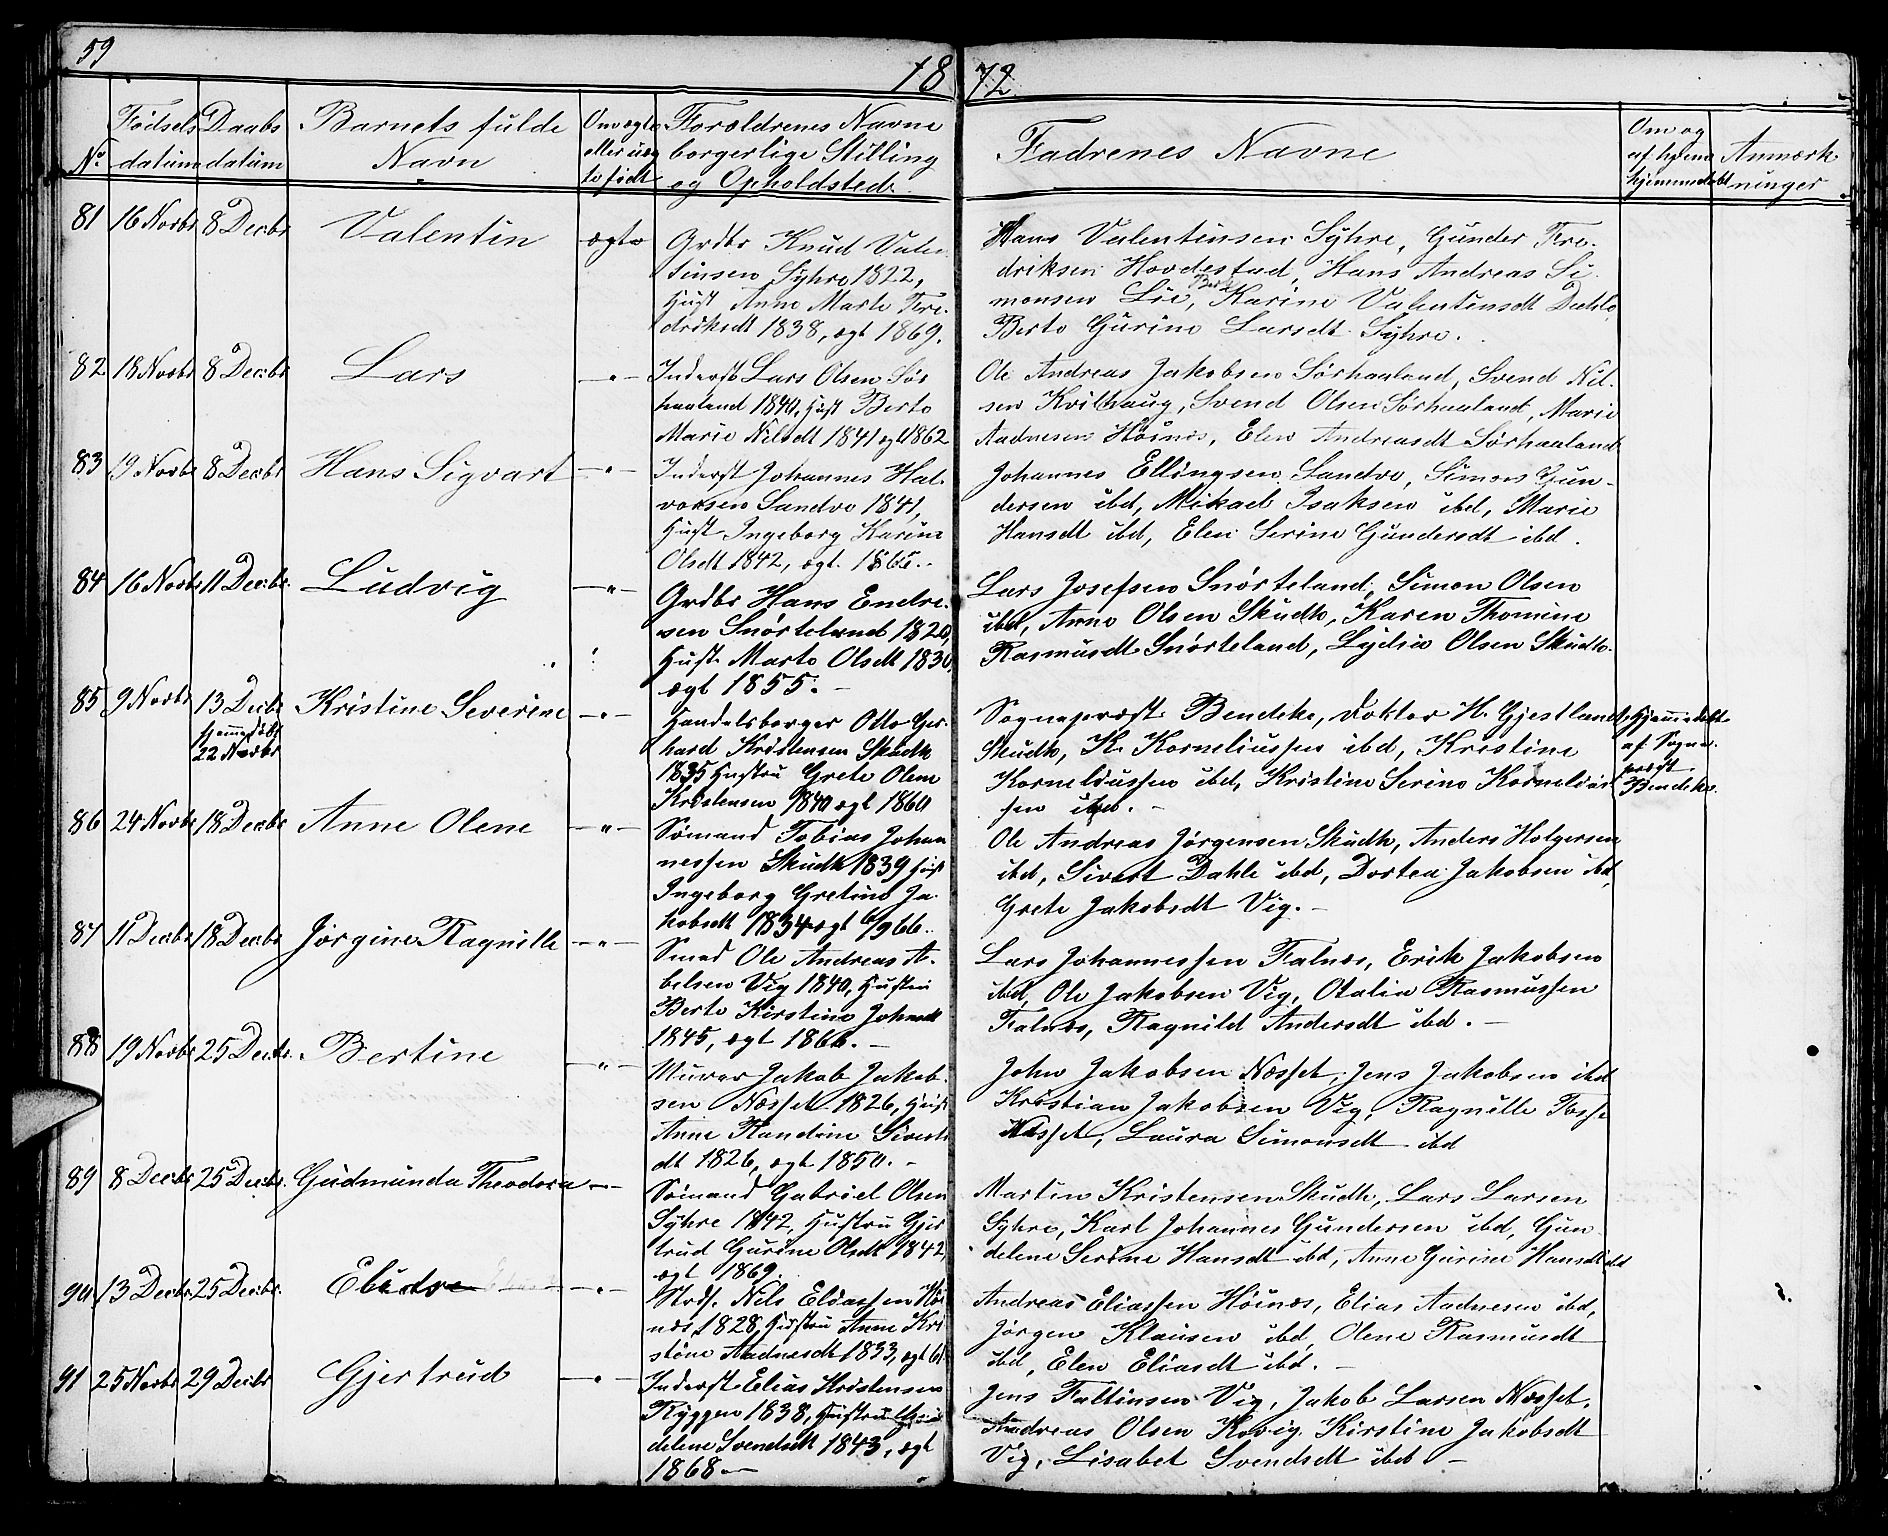 59
1872
No
Fødsels datum
Daabs datum
Barnets fulde Navn
Om ægte eller uægte født
Forældrenes Navne borgerlige Stilling og Opholdsted
Fadrenes Navne
Om og af hvem hjemmedøbt
Anmærkninger
81 16 Novbr 8 Decbr Valentin ægte
Grdbr Knud Valen
tinsen Syhre 1822,
Hust Anne Marte Fre-
driksdt 1838, ægt 1869.
Hans Valentinsen Syhre, Gunder Fre-
driksen Hovdestad, Hans Andreas Si-
monsen Lie, Karine Valentinsdt
Berte Gurine Larsdt Syhre.
82 18 Novbr 8 Decbr Lars —"—
Inderst Lars Olsen Sør
haaland 1840, Hust Berte
Marie Nilsdt 1841 ægt 1862
Ole Andreas Jakobsen Sørhaaland, Svend Nil-
sen Kvilhaug, Svend Olsen Sørhaaland, Marie
Aadnesen Høines, Elen Andreasdt Sørhaaland
83 19 Novbr 8 Decbr Hans Sigvart —"—
Inderst Johannes Hal-
vorsen Sandve 1841,
Hust Ingeborg Karine
Olsdt 1842, ægt. 1865.
Johannes Ellingsen Sandve, Simon Gun-
dersen ibd, Mikael Isaksen ibd, Marie
Hansdt ibd, Elen Serine Gundersdt ibd.
84 16 Novbr 11 Decbr Ludvig —"—
Grdbr Hans Endre-
sen Snørteland 1820,
Hust. Marte Olsdt 1830,
ægt 1855. —
Lars Josefsen Snørteland, Simon Olsen
ibd, Anne Olsen Skudh, Karen Thomine
Rasmusdt Snørteland, Lydia Olsen Skudh.
85 9 Novbr 13 Decbr Kristine Severine —"—
Hjemmedøbt
22 Novbr
Handelsborger Otto Ger
hard Kristensen Skudh
1835 Hustru Grete Olene
Kristensen 1840 ægt 1860
Sogneprest Bendeke, Doktor H. Gjestland,
Skudh, K. Korneliussen ibd, Kristine
Korneliussen ibd, Kristine Serine Kornelius
sen ibd. —
Hjemmedøbt
af Sogne-
prest
Bendeke.
86 24 Novbr 18 Decbr Anne Olene —"—
Sømand Tobias Johan
nessen Skudh 1839 Hust
Ingeborg Gretine Ja-
kobsdt 1834 ægt 6/9 66.
Ole Andreas Jørgensen Skudh, Anders Holgersen
ibd, Sivert Dahle ibd, Dortea Jakobsen ibd,
Grete Jakobsdt Vig. —
87 11 Decbr 18 Decbr Jørgine Ragnille —"—
Smed Ole Andreas A-
belsen Vig 1840, Hustru
Berte Kirstine Johnsdt
1845, ægt 1866. —
Lars Johannessen Falnes, Erik Jakobsen
ibd, Ole Jakobsen Vig, Otalia Rasmussen
Falnes, Ragnild Andersdt ibd. —
88 19 Novbr 25 Decbr Bertine —"—
Murer Jakob Jakob-
sen Nesset 1826, Hust
Anne Randine Siverts
dt 1826, ægt 1850. —
John Jakobsen Nesset, Jens Jakobsen ibd
Kristian Jakobsen Vig, Ragnille
Nesset, Laura Simonsdt ibd
89 8 Decbr 25 Decbr Gudmunda Theodora —"—
Sømand Gabriel Olsen
Syhre 1842, Hustru Gjer
trud Gurine Olsdt 1842,
ægt 1869.
Martin Kristensen Skudh, Lars Larsen
Syhre, Karl Johannes Gundersen ibd, Gun-
delene Serine Hansdt ibd, Anne Gurine Hansdt ibd
90 13 Decbr 25 Decbr —"—
Nils Eliassen Høi
nes, 1828, Hustru Anne Kri
stine Aadnesdt 1833, ægt 61.
Andreas Eliassen Høines, Elias Aadnesen ibd,
Jørgen Klausen ibd, Olene Rasmusdt
ibd, Elen Eliasdt ibd. —
91 25 Novbr 29 Decbr Gjertrud —"—
Inderst Elias Kristensen
Ryggen 1838, Hustru
delene Svendsdt 1843, ægt
1868 —
Jens Faltinsen Vig, Jakob Larsen Nesset,
Andreas Olsen Kosig, Kirstine Jakobsdt
Vig, Lisabet Svendsdt ibd —